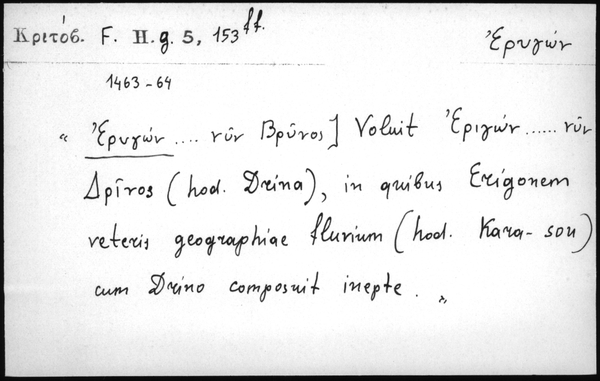 Κριτόβ. F. H. g. 5, 153 ff. Ἐρυγών
1463-64
“ Ἐρυγών .... νῦν Βρῦνος] Voluit Ἐριγών ...... νῦν
Δρῖνος (hod. Drina), in quibus Erigonem
veteris geographiae fluvium (hod. Kara-sou)
cum Drino composuit inepte. „